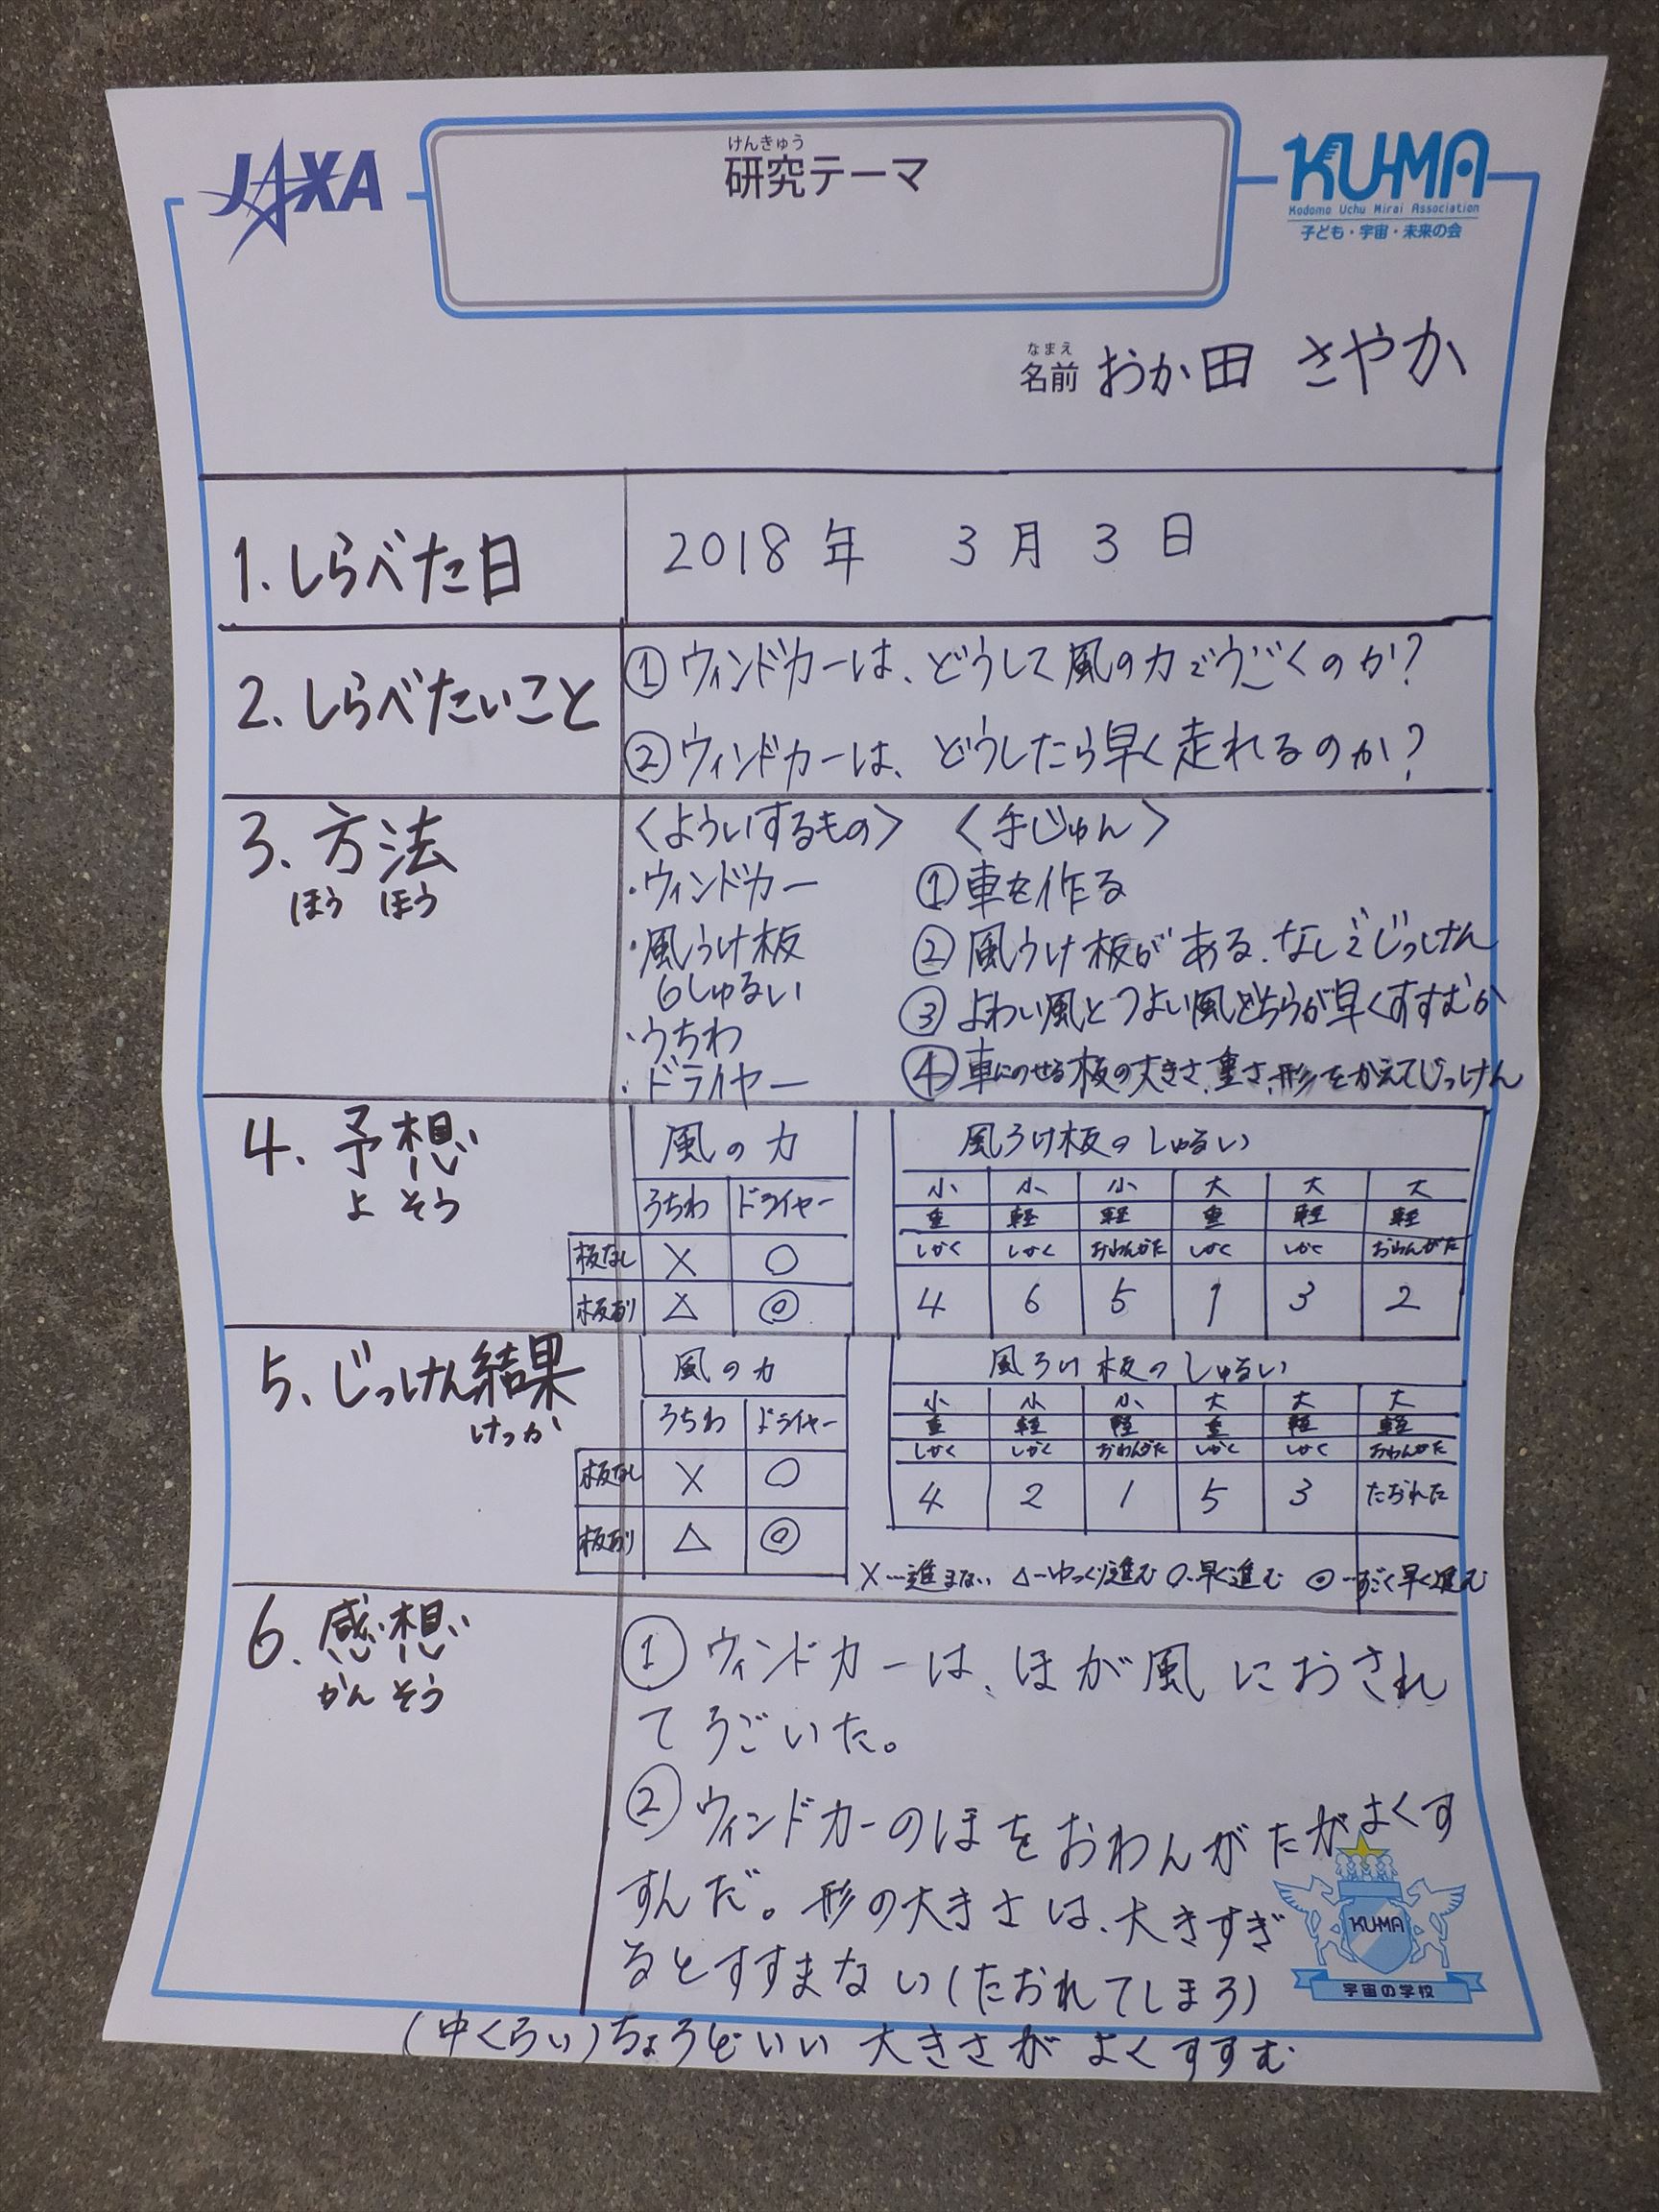 JAXA
けんきゅう
研究テーマ
KU-MA
Kodomo Uchu Mirai Association
子ども・宇宙・未来の会
なまえ
名前 おか田 さやか
1. しらべた日
2018年 3月3日
2. しらべたいこと
①ウィンドカーは、どうして風の力でうごくのか?
②ウィンドカーは、どうしたら早く走れるのか?
3. 方法
ほう ほう
〈よういするもの〉
・ウィンドカー
・風うけ板
6しゅるい
・うちわ
・ドライヤー
〈手じゅん〉
①車を作る
②風うけ板がある、なしでじっけん
③よわい風とつよい風どちらが早くすすむか
④車にのせる板の大きさ、重さ、形をかえてじっけん
4. 予想
よ そう
風の力
うちわ ドライヤー
板なし × ○
板あり △ ◎
風うけ板のしゅるい
小 小 小 大 大 大
重 軽 軽 重 軽 軽
しかく しかく おわんがた しかく しかく おわんがた
4 6 5 1 3 2
5. じっけん結果
けっか
風の力
うちわ ドライヤー
板なし × ○
板あり △ ◎
風うけ板のしゅるい
小 小 小 大 大 大
重 軽 軽 重 軽 軽
しかく しかく おわんがた しかく しかく おわんがた
4 2 1 5 3 たおれた
×…進まない △…ゆっくり進む ○…早く進む ◎…すごく早く進む
6. 感想
かん そう
①ウィンドカーは、ほが風におされ
てうごいた。
②ウィンドカーのほをおわんがたがよくす
すんだ。形の大きさは、大きすぎ
るとすすまない(たおれてしまう)
(中くらい)ちょうどいい大きさがよくすすむ
KU-MA
宇宙の学校